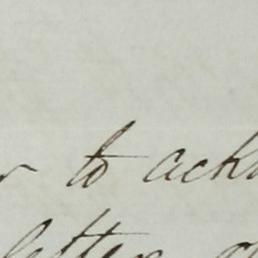 r to ack
letter